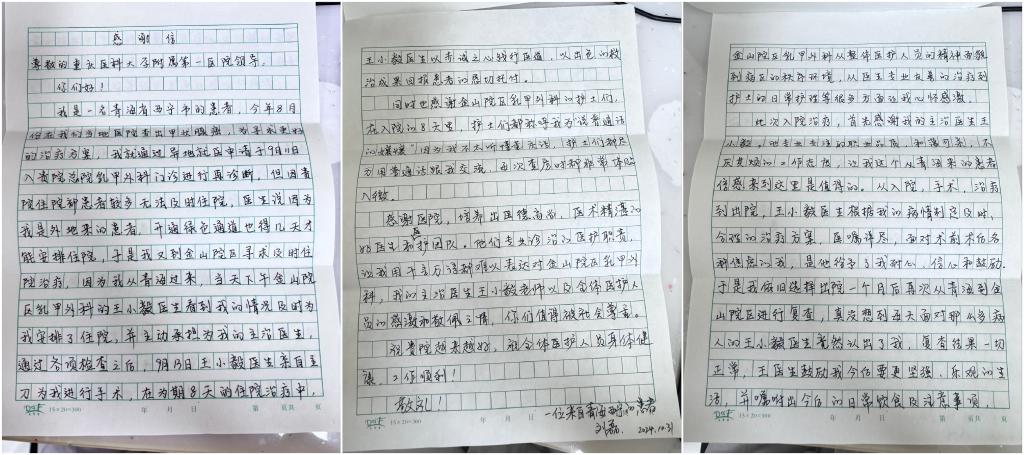 感谢信
尊敬的重庆医科大学附属第一医院领导:
你们好!
我是一名青海省西宁市的患者,今年8月
份在我们当地医院查出甲状腺癌,为寻求更好
的治疗方案,我就通过异地就医申请于9月11日
入贵院总院乳甲外科门诊进行再诊断,但因贵
院住院部患者较多无法及时住院,医生说因为
我是外地来的患者,开通绿色通道也得几天才
能安排住院,于是我又到金山院区寻求及时住
院治疗,因为我从青海过来,当天下午金山院
区乳甲外科的王小毅医生看到我的情况及时为
我安排了住院,并主动承担为我的主治医生,
通过各项检查之后,9月13日王小毅医生亲自主
刀为我进行手术,在为期8天的住院治疗中,
15×20=300 年 月 日 第 页共 页
王小毅医生以赤诚之心践行医德,以出色的救
治成果回报患者的恳切托付。
同时也感谢金山院区乳甲外科的护士们,
在入院的8天里,护士们都称呼我为“说普通话
的嬢嬢”因为我不太听懂重庆话,护士们都尽
力用普通话跟我交流,再次重原时种种非常体贴
入微。
感谢医院,培养出医德高尚、医术精湛的
好医生和医护团队。他们专业诊治的医护职责,
让我用千言万语都难以表达对金山院区乳甲外
科,我的主治医生王小毅老师以及全体医护人
员的感激和敬佩之情,你们值得被社会尊重。
祝贵院越来越好,祝全体医护人员身体健
康,工作顺利!
敬礼!
一位来自青海西宁的患者
刘磊 2024.10.31
15×20=300 年 月 日
金山院区乳甲外科从整体医护人员的精神面貌
到病区的秩序环境,从医生专业负责的治疗到
护士的日常护理等很多方面让我心怀感激。
此次入院治疗,首先感谢我的主治医生王
小毅,他专注的职业品质、和蔼可亲、不
厌其烦的工作态度,让我这个从青海来的患者
倍感来到这里是值得的。从入院,手术,治疗
到出院,王小毅医生根据我的病情制定及时、
合理的治疗方案,医嘱详尽,面对术前术后各
种焦虑的我,是他给予了我耐心,信心和鼓励。
于是我依旧选择出院一个月后再次从青海到金
山院区进行复查,真没想到每天面对那么多病
人的王小毅医生竟然认出了我,复查结果一切
正常,王医生鼓励我今后要更坚强、乐观的生
活,并嘱咐出今后的日常饮食及注意事项,
15×20=300 年 月 日 第 页共 页